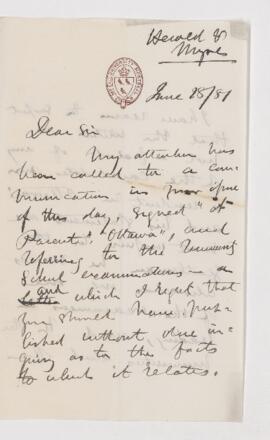 Herald &
June 28/81
Dear Sir
My attention has
been called to a com-
munication in your issue
of this day, signed "A
Parent", "Ottawa", and
referring to the
School examinations - a
and which I regret that
you should have pub-
lished without due in-
quiry as to the facts
to which it relates.